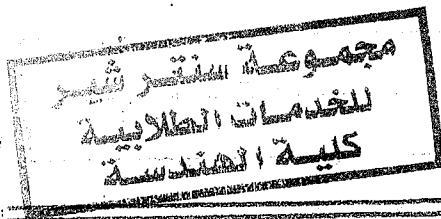 مجموعة سنتر فير
للخدمات الطلابية
كلية الهندسة